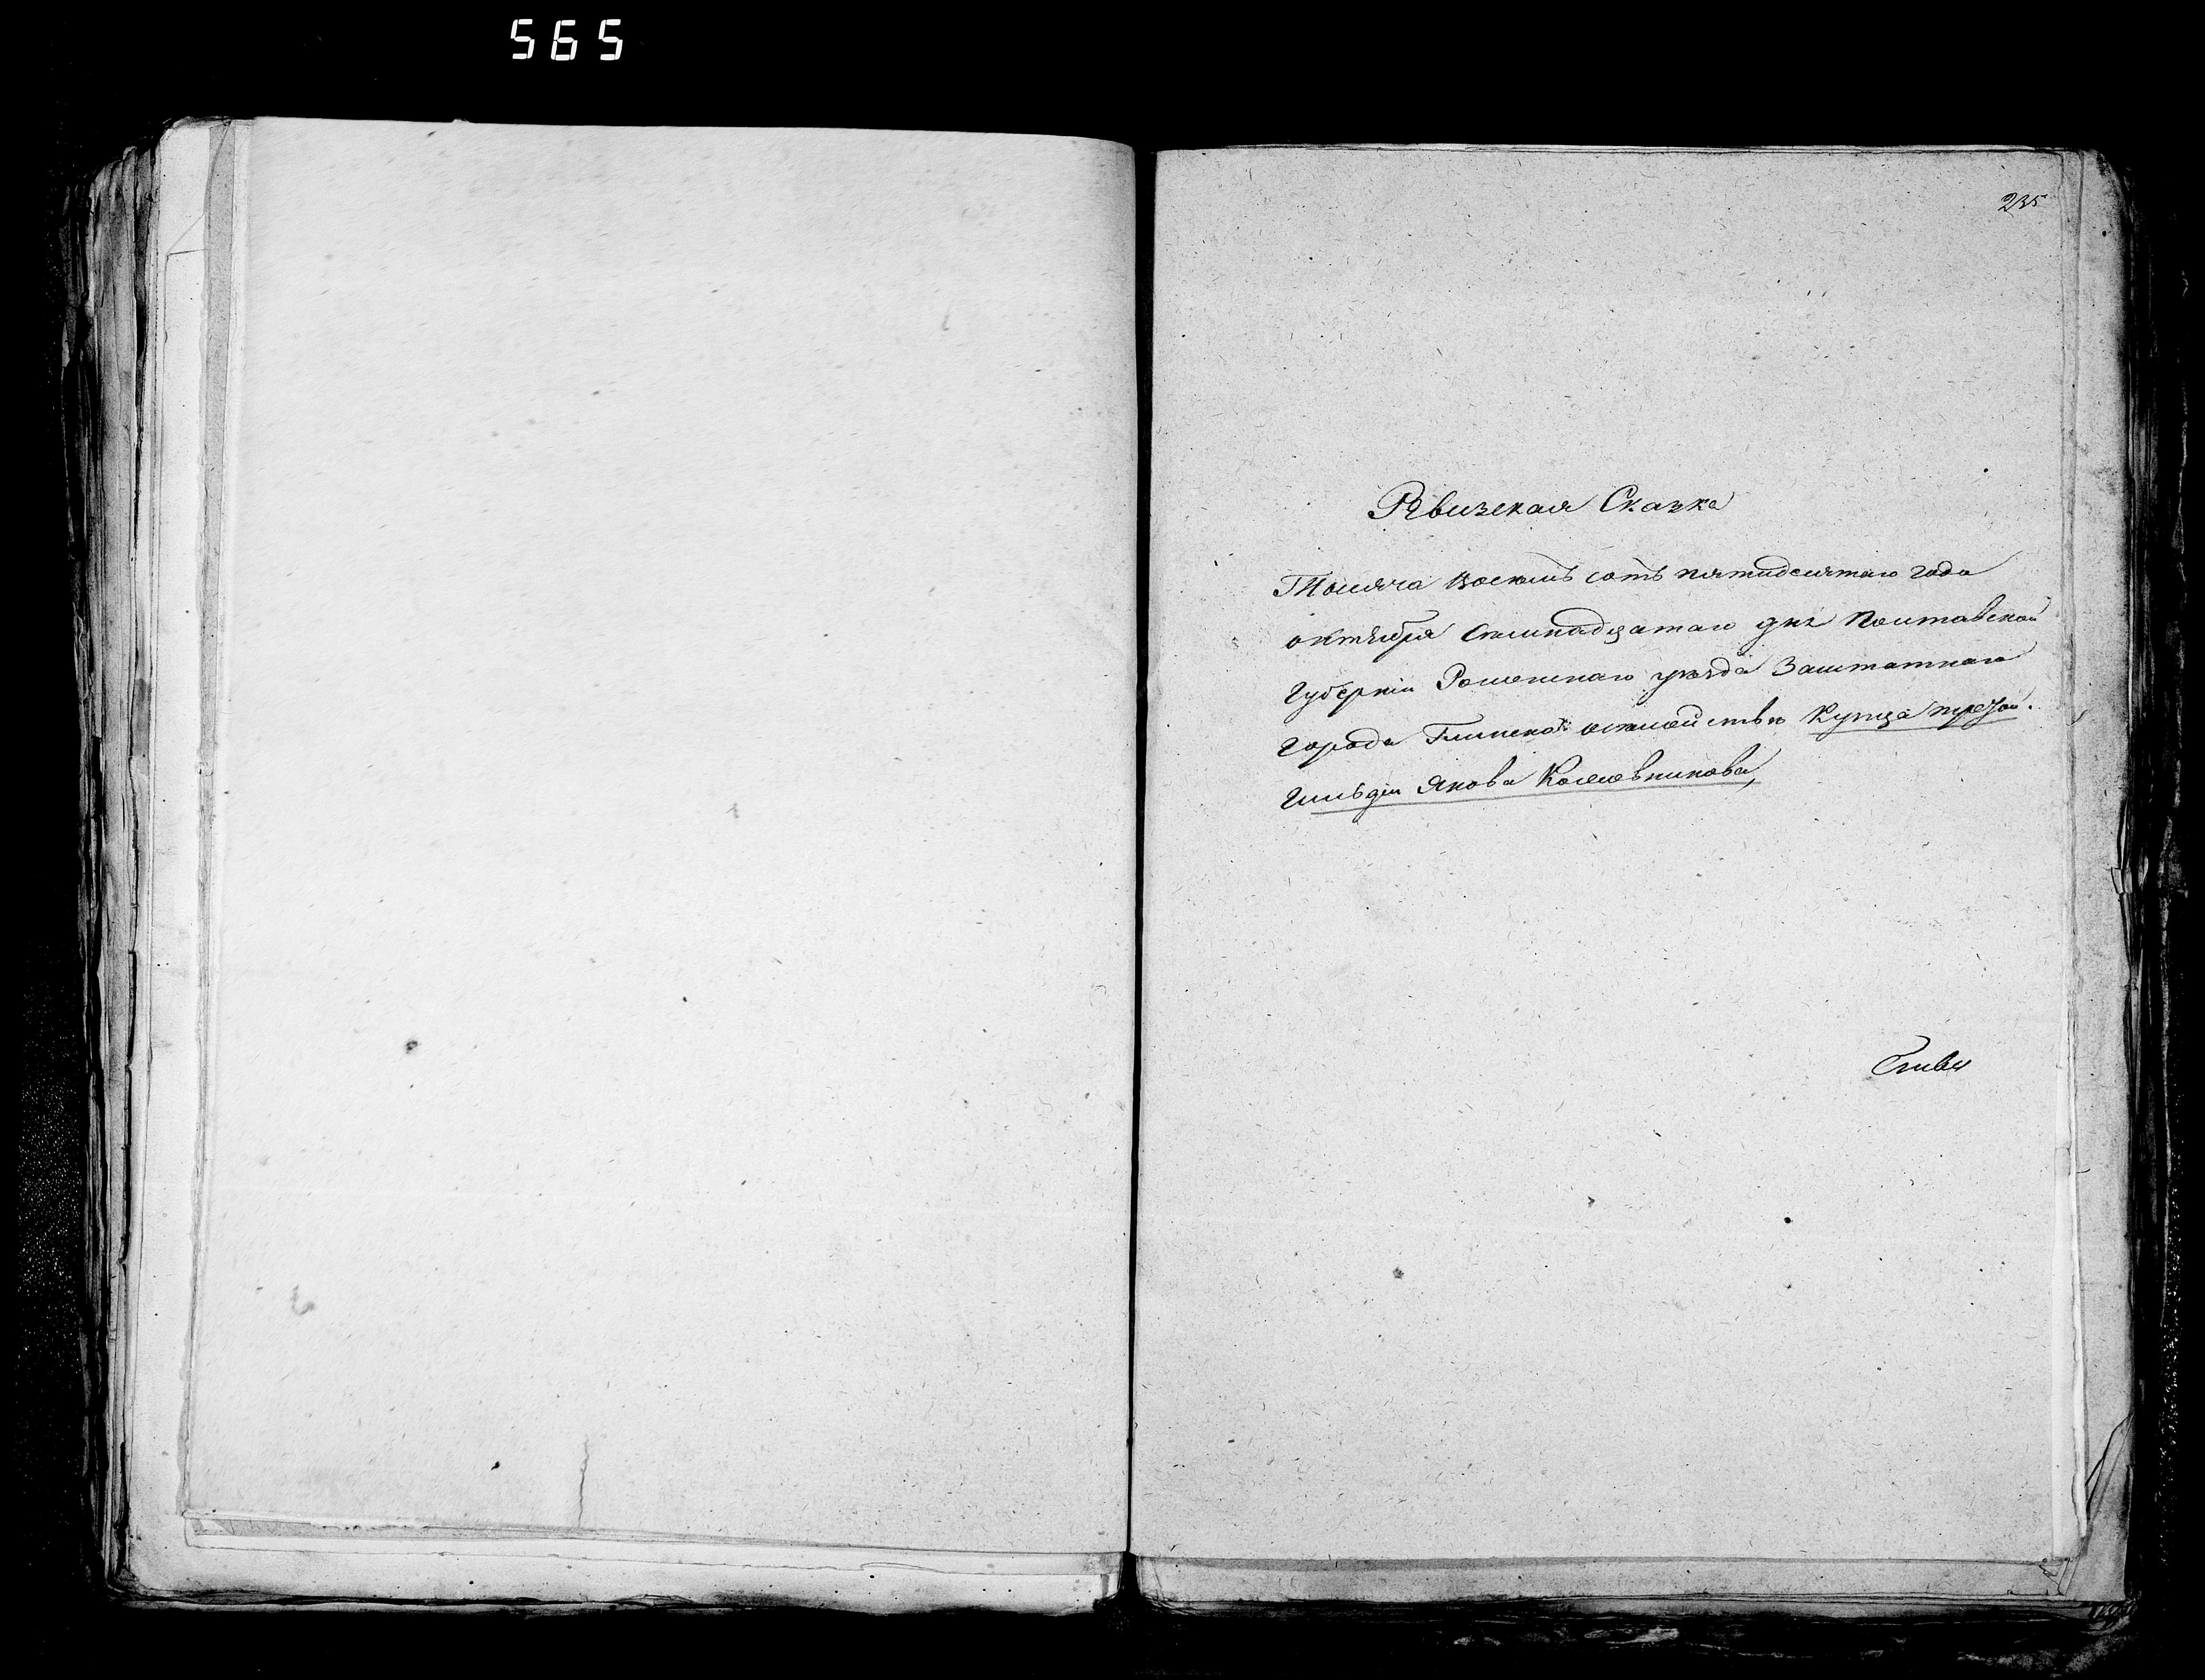 565
235
Ревизская Сказка
Тысяча восемь сотъ пятидесятаго года
октября семнадцатаго дня Полтавской
Губерніи Роменскаго уѣзда Заштатнаго
города Глинска о семействѣ Купца третьей
Гильдіи Якова Кожевникова,